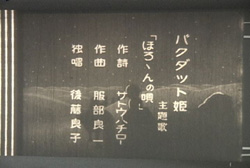 バクダット姫
主題歌
「ほろゝんの唄」
作詩 サトウハチロー
作曲 服部良一
独唱 後藤良子